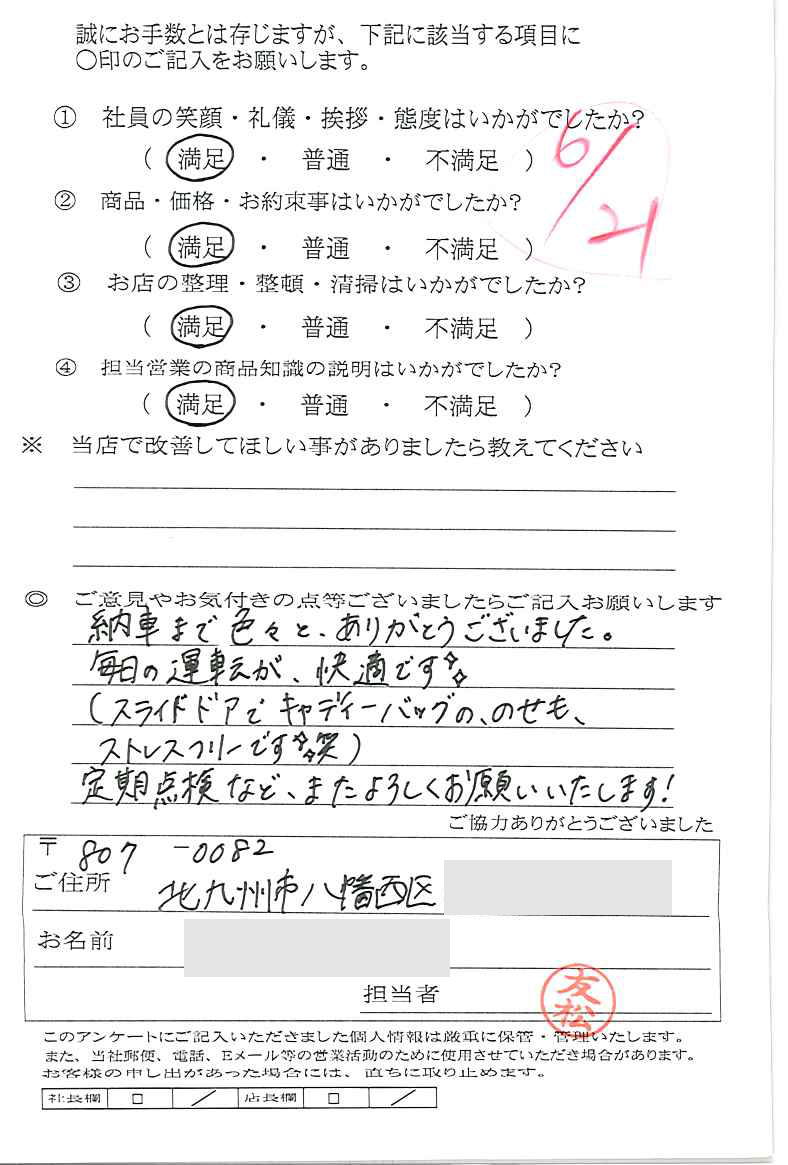 誠にお手数とは存じますが、下記に該当する項目に
○印のご記入をお願いします。
① 社員の笑顔・礼儀・挨拶・態度はいかがでしたか?
( 満足 ・ 普通 ・ 不満足 )
6/21
② 商品・価格・お約束事はいかがでしたか?
( 満足 ・ 普通 ・ 不満足 )
③ お店の整理・整頓・清掃はいかがでしたか?
( 満足 ・ 普通 ・ 不満足 )
④ 担当営業の商品知識の説明はいかがでしたか?
( 満足 ・ 普通 ・ 不満足 )
※ 当店で改善してほしい事がありましたら教えてください
◎ ご意見やお気付きの点等ございましたらご記入お願いします
納車まで色々と、ありがとうございました。
毎日の運転が、快適です✨
(スライドドアでキャディーバッグの、のせも、
ストレスフリーです✨笑)
定期点検など、またよろしくお願いいたします!
ご協力ありがとうございました
〒 807-0082
ご住所 北九州市八幡西区
お名前
担当者 友松
このアンケートにご記入いただきました個人情報は厳重に保管・管理いたします。
また、当社郵便、電話、Eメール等の営業活動のために使用させていただき場合があります。
お客様の申し出があった場合には、直ちに取り止めます。
社長欄 □ / 店長欄 □ /